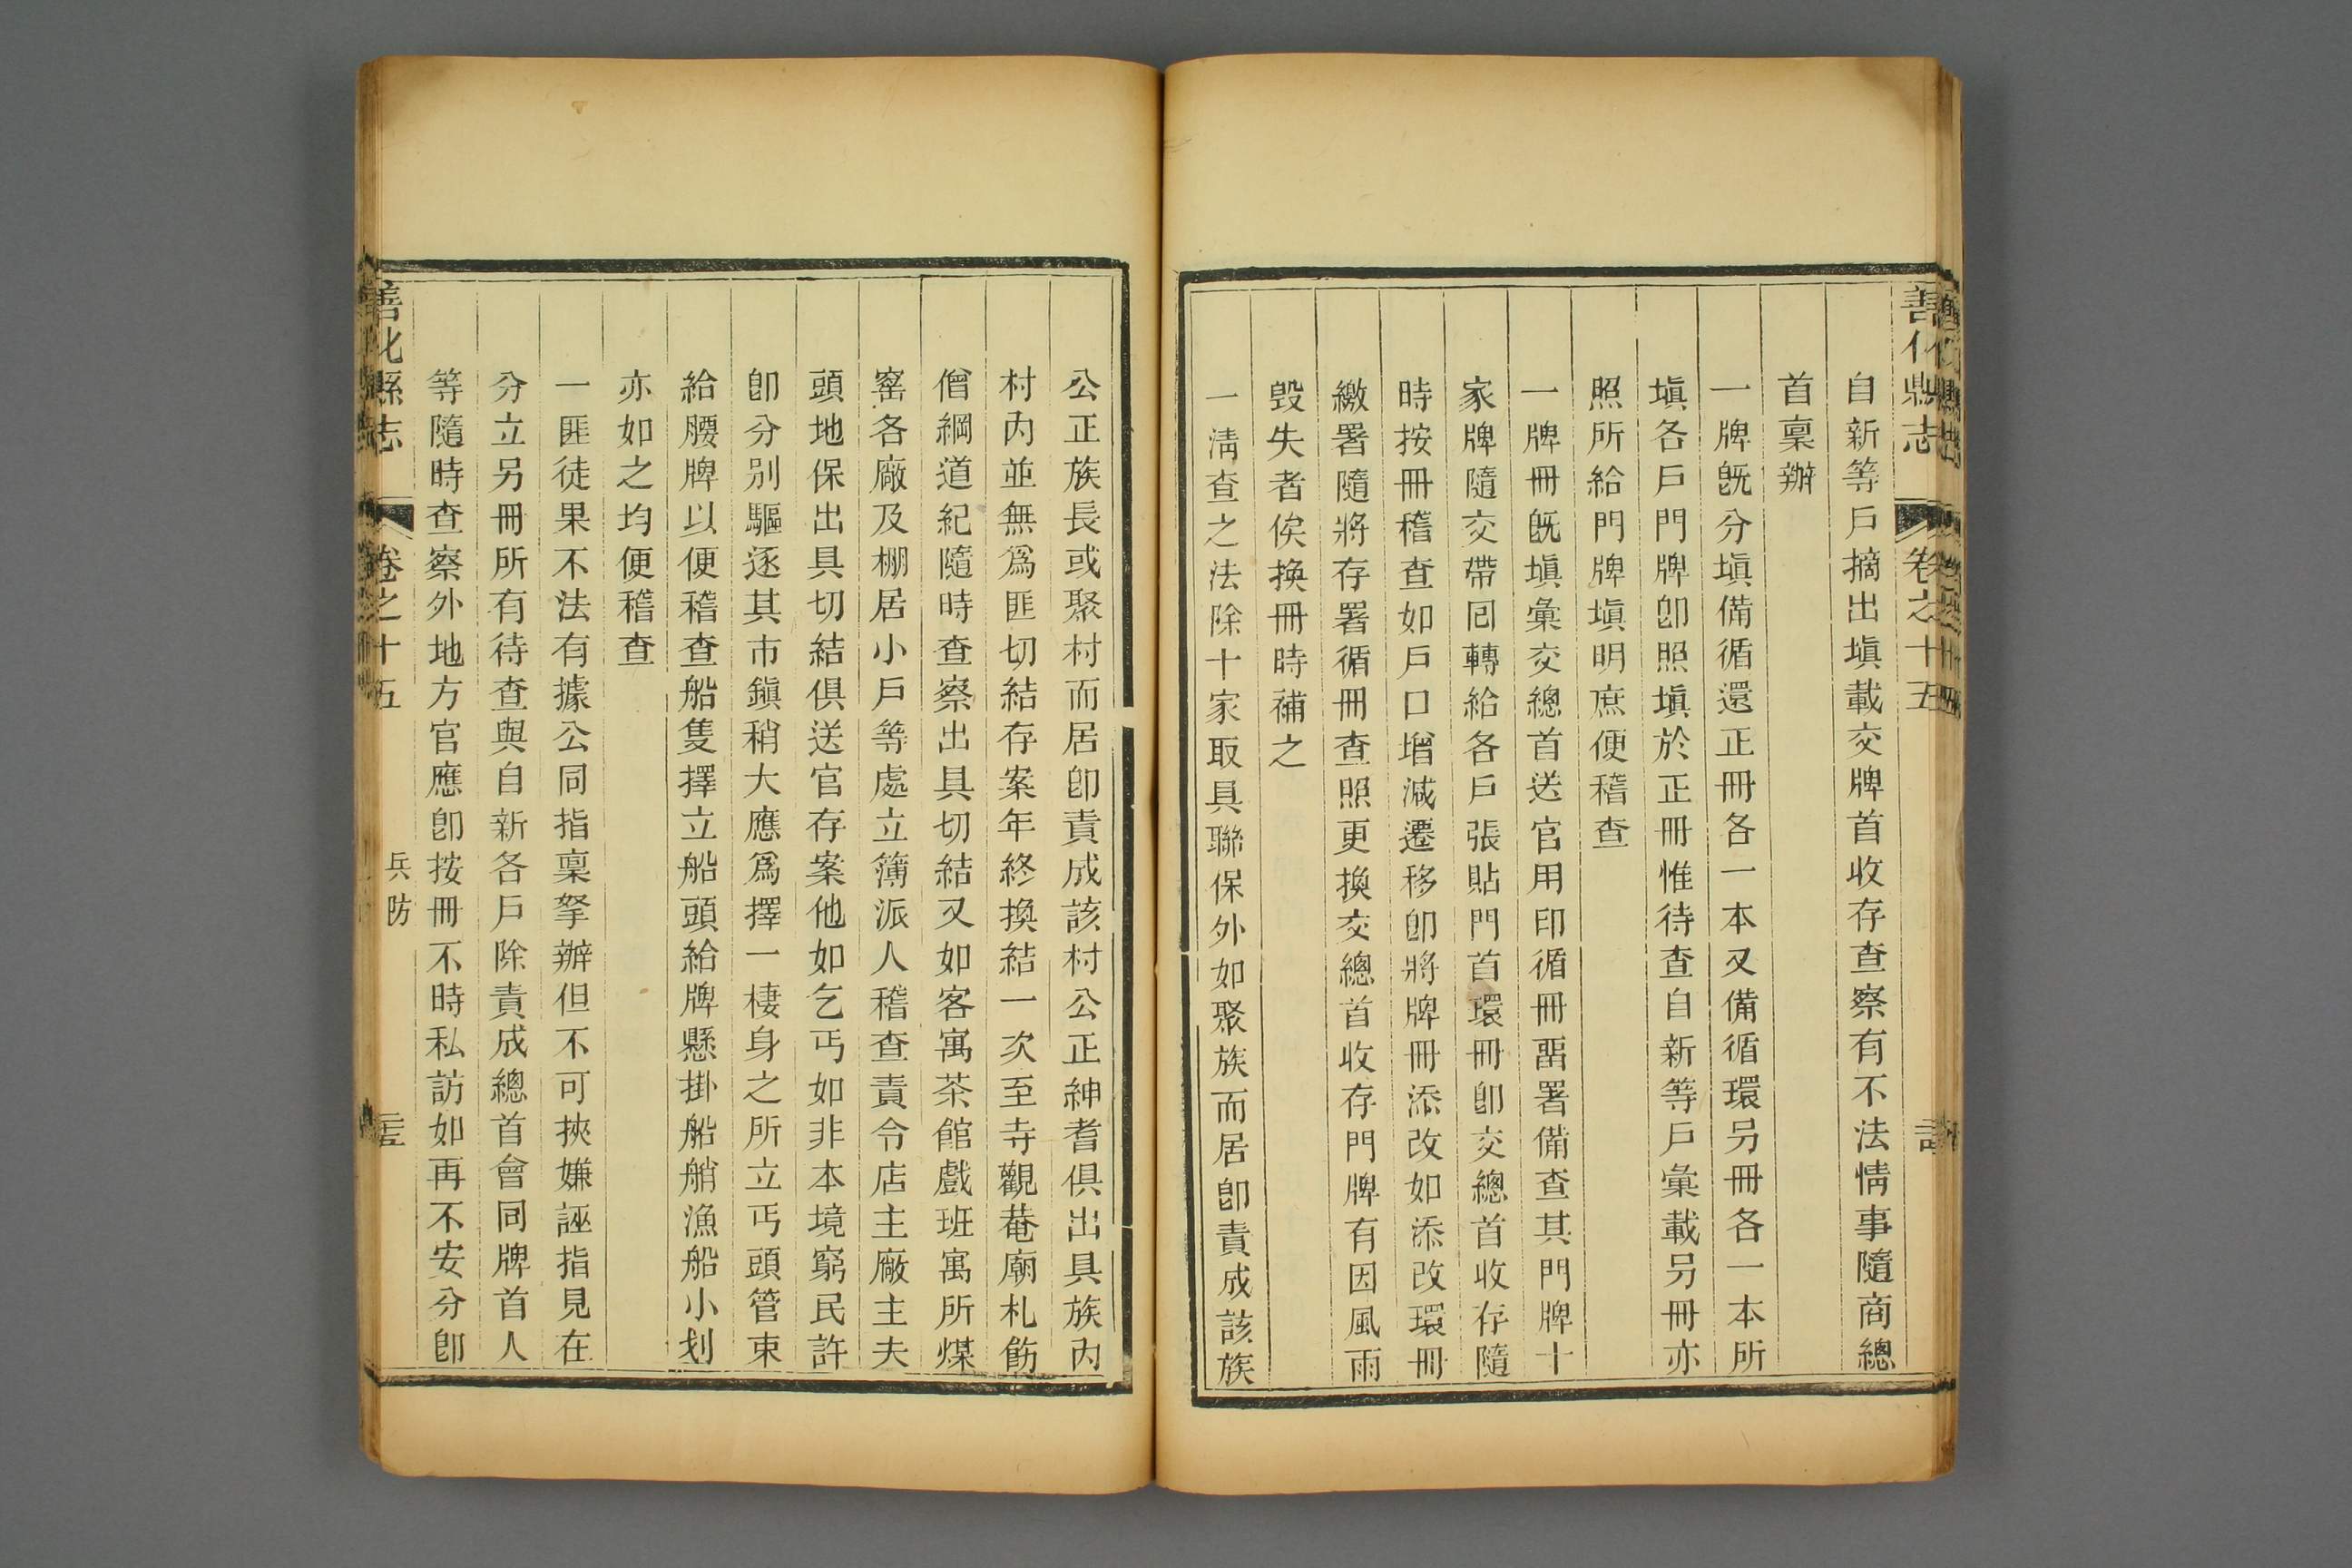 善化縣志 卷之十五
自新等戶摘出塡載交牌首收存查察有不法情事隨商總
首稟辦
一牌旣分塡備循還正冊各一本又備循環另冊各一本所
塡各戶門牌卽照塡於正冊惟待查自新等戶彙載另冊亦
照所給門牌塡明庶便稽查
一牌冊旣塡彙交總首送官用印循冊畱署備查其門牌十
家牌隨交帶囘轉給各戶張貼門首環冊卽交總首收存隨
時按冊稽查如戶口增減遷移卽將牌冊添改如添改環冊
繳署隨將存署循冊查照更換交總首收存門牌有因風雨
毀失者俟換冊時補之
一淸查之法除十家取具聯保外如聚族而居卽責成該族
公正族長或聚村而居卽責成該村公正紳耆俱出具族內
村內並無爲匪切結存案年終換結一次至寺觀菴廟札飭
僧綱道紀隨時查察出具切結又如客寓茶館戲班寓所煤
窰各廠及棚居小戶等處立簿派人稽查責令店主廠主夫
頭地保出具切結俱送官存案他如乞丐如非本境窮民許
卽分別驅逐其市鎭稍大應爲擇一棲身之所立丐頭管束
給腰牌以便稽查船隻擇立船頭給牌懸掛船艄漁船小划
亦如之均便稽查
一匪徒果不法有據公同指稟拏辦但不可挾嫌誣指見在
分立另冊所有待查與自新各戶除責成總首會同牌首人
等隨時查察外地方官應卽按冊不時私訪如再不安分卽
善化縣志 卷之十五 兵防